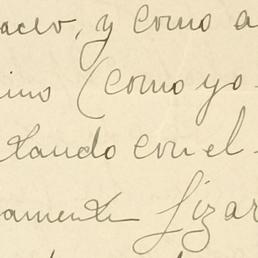 y como a
(como yo
tando con el
amente Lizar